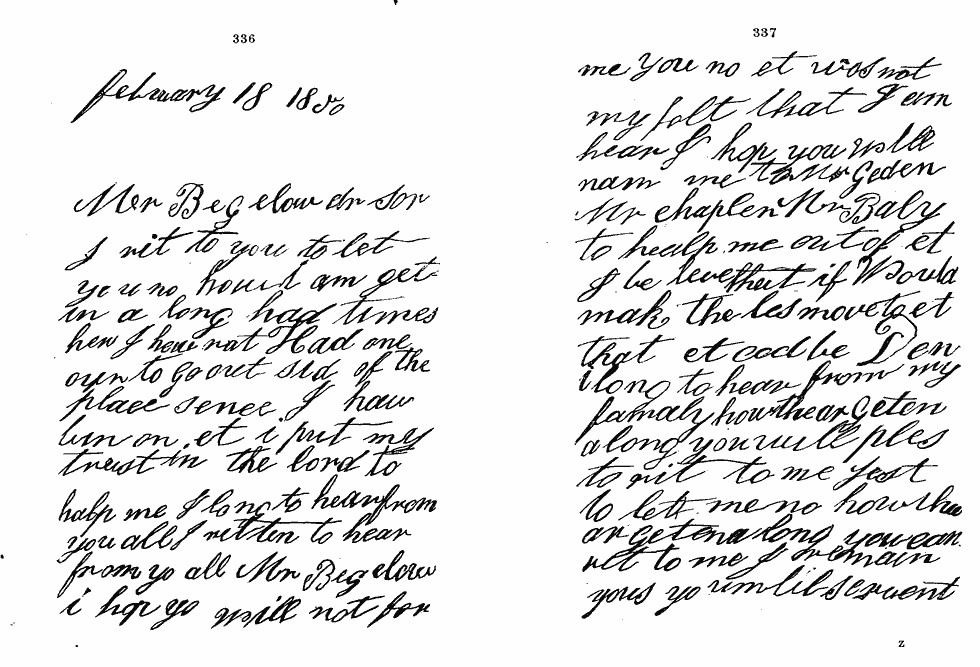 336
february 18 1850
Mer Begelow dr Ser
I rit to you to let
you no hou I am get
in a long had times
her I have not Had one
our to go out sid of the
place sence I haw
bin on et i put my
treust in the lord to
halp me I long to hear from
you all I ritten to hear
from yo all Mr Begelow
i hop yo will not for
337
me you no et wos not
my folt that I am
hear I hop you will
nam me to Mr Geden
Mr chaplen Mr Baly
to healp me out of et
I be leve that if Would
mak the les move to et
that et cod be Den
i long to hear from my
famaly how thear Geten
a long you will ples
to rit to me jest
to let me no how tha
ar geten a long you can
rit to me I remain
yous yo umlilserwent
Z